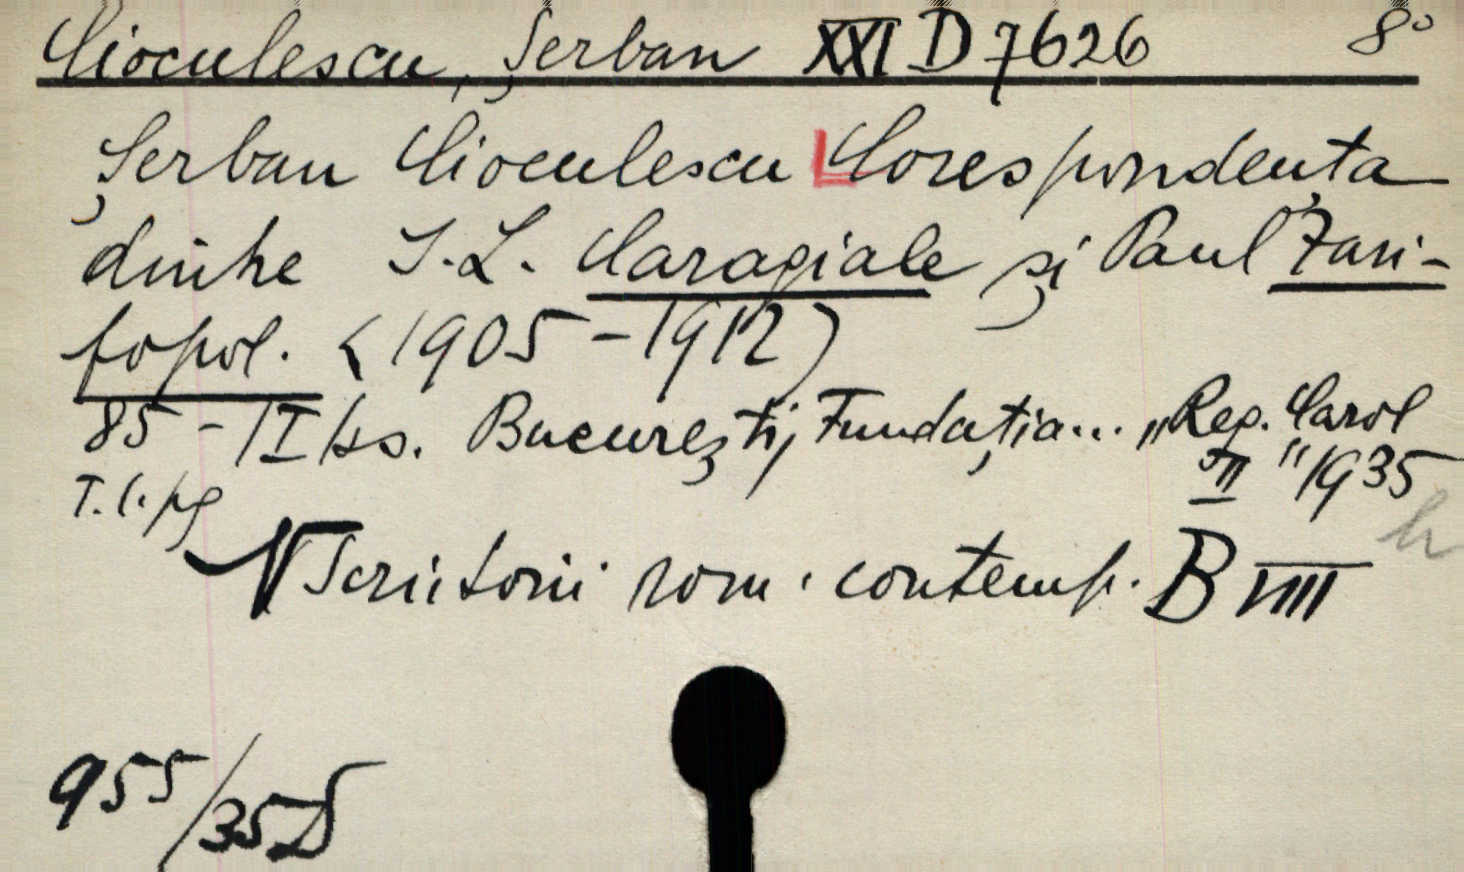 Cioculescu, Șerban XXI D 7626 8°
Șerban Cioculescu Corespondența
dintre I.L. Caragiale și Paul Zari-
fopol. (1905-1912)
București, Fundația... „Reg. Carol
II" 1935
Scriitorii rom. contemp. B VIII
955/35 D